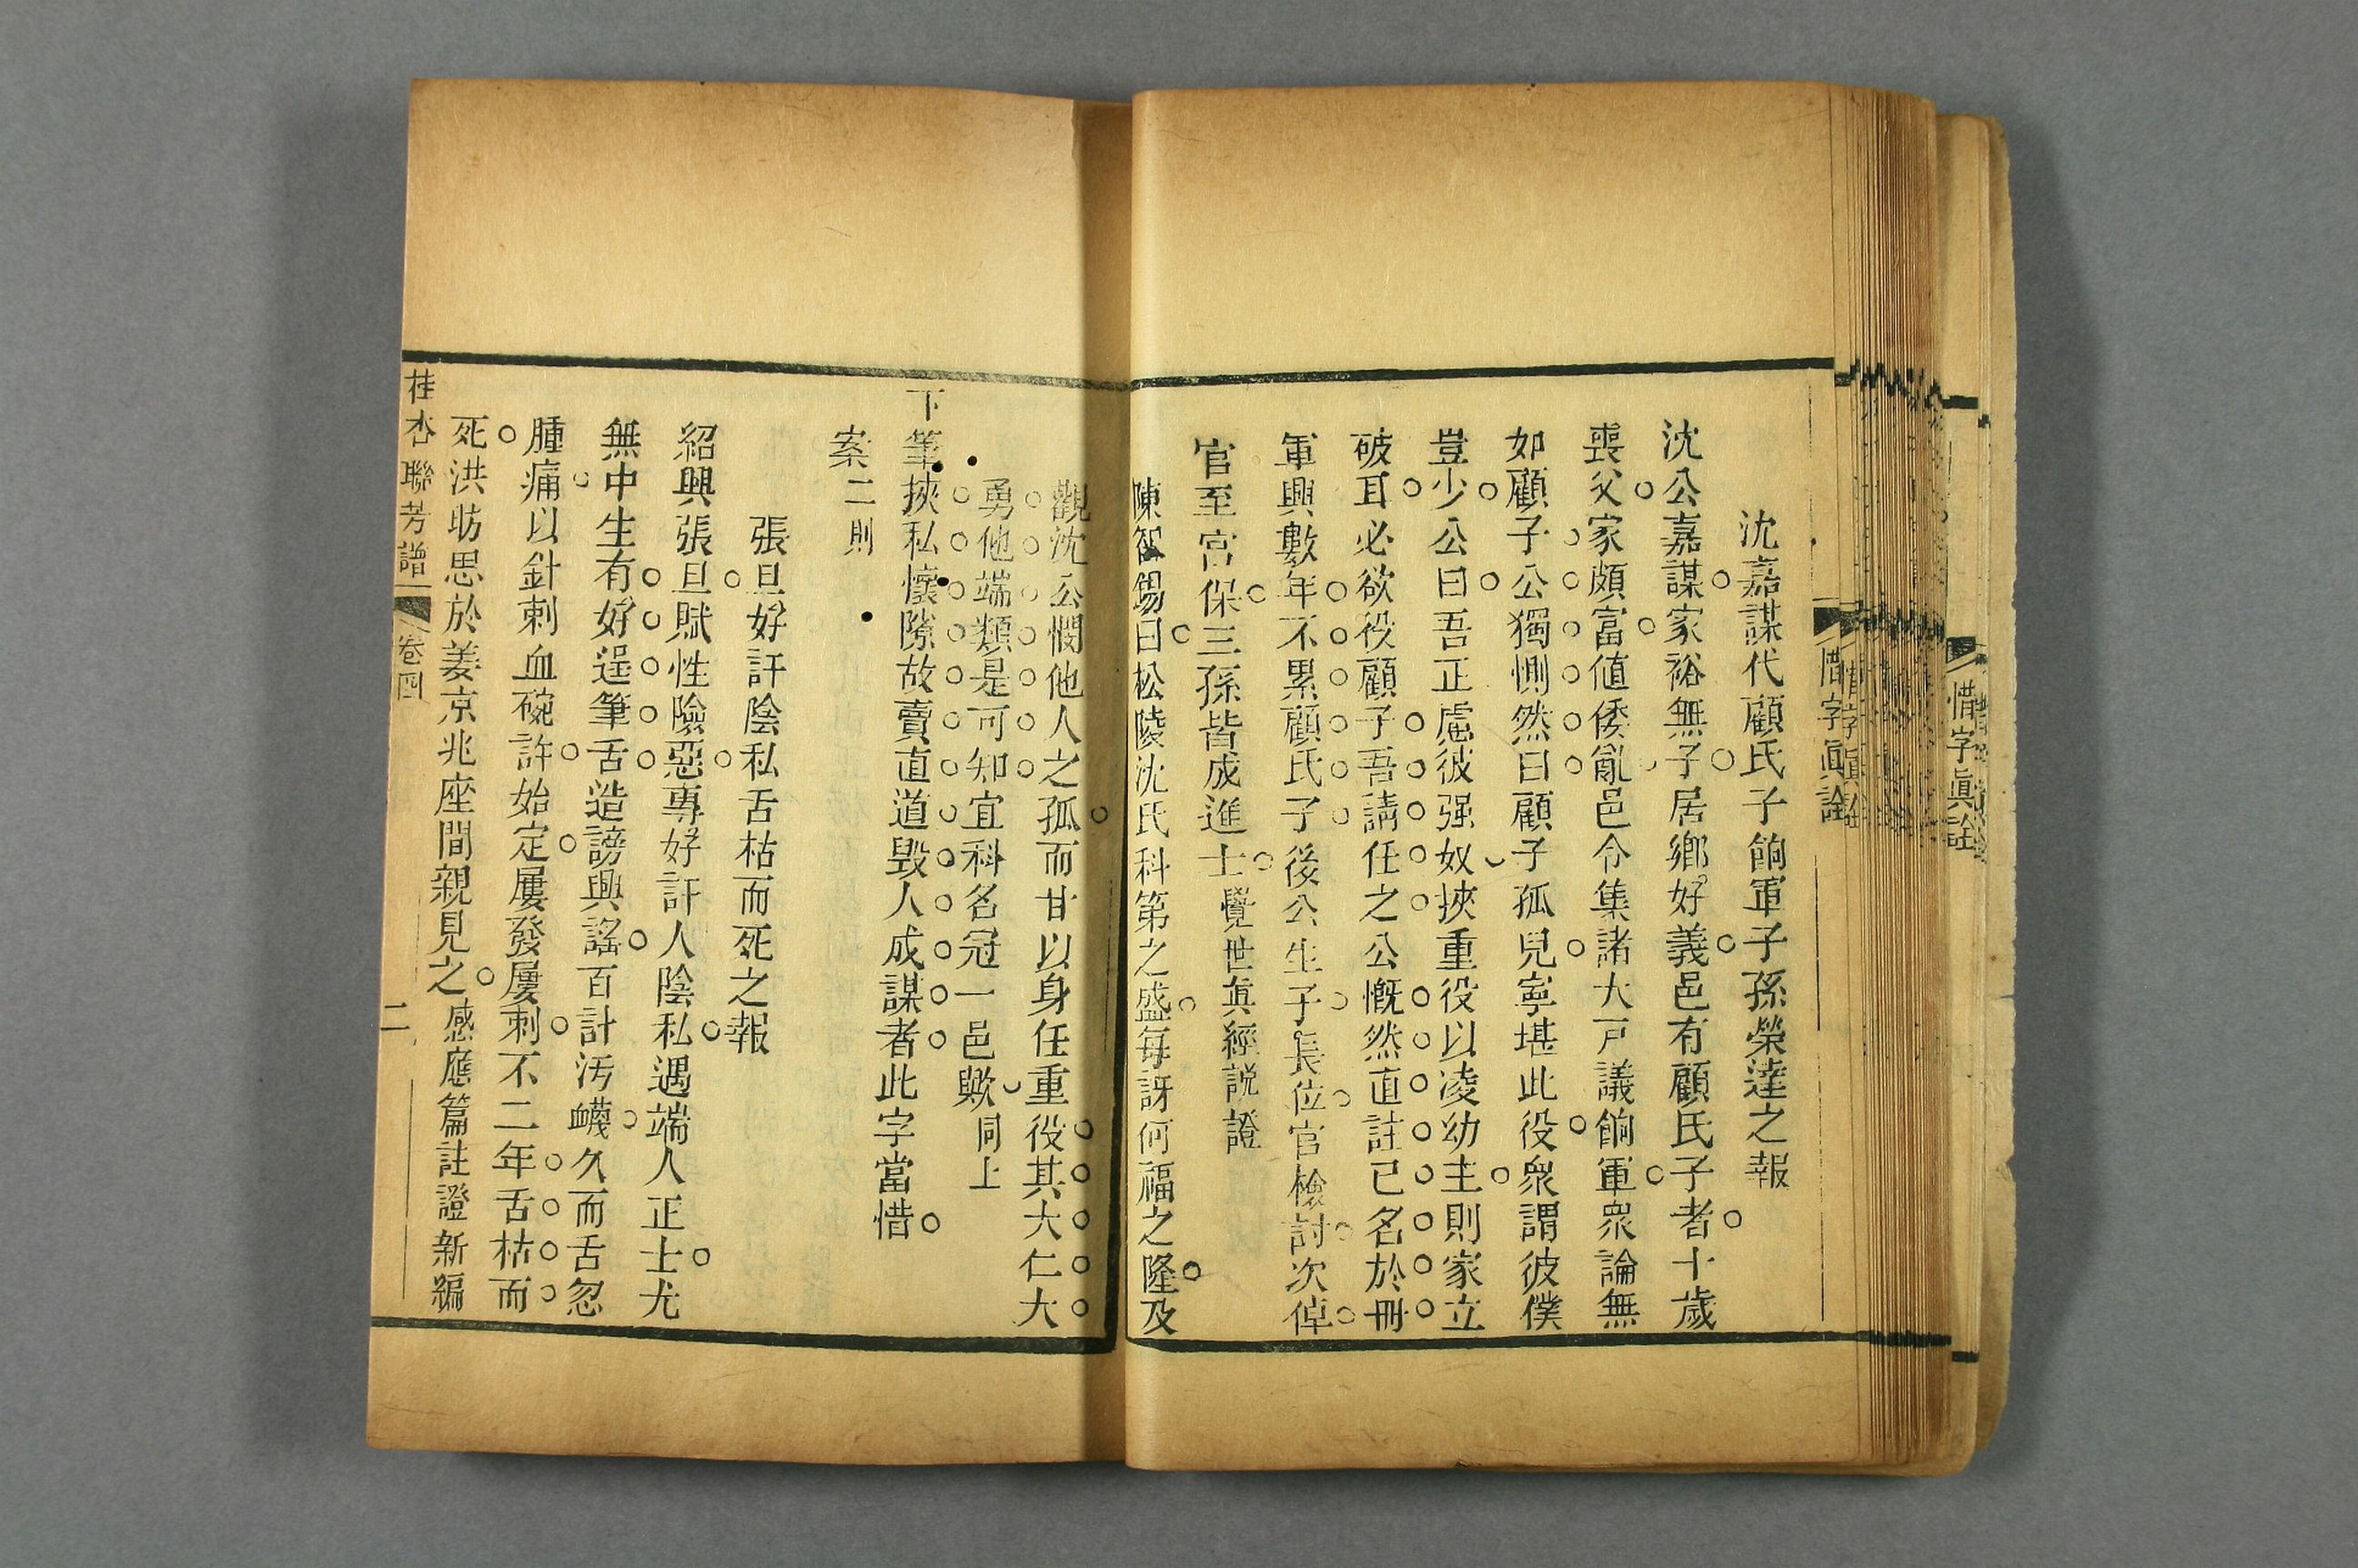 惜字眞詮
惜字眞詮
沈嘉謀代顧氏子餉軍子孫榮達之報
沈公嘉謀家裕無子居鄉好義邑有顧氏子者十歲
喪父家頗富値倭亂邑令集諸大戸議餉軍衆論無
如顧子公獨惻然曰顧子孤兒寧堪此役衆謂彼僕
豈少公曰吾正慮彼强奴挾重役以凌幼主則家立
破耳必欲役顧子吾請任之公慨然直註已名於冊
軍興數年不累顧氏子後公生子長位官檢討次倬
官至宮保三孫皆成進士覺世眞經説證
陳智錫曰松陵沈氏科第之盛每訝何福之隆及
觀沈公憫他人之孤而甘以身任重役其大仁大
勇他端類是可知宜科名冠一邑歟同上
下筆挾私懷隙故賣直道毁人成謀者此字當惜
案二則
張旦好訐陰私舌枯而死之報
紹興張旦賦性險惡專好訐人陰私遇端人正士尤
無中生有好逞筆舌造謗興謠百計汚衊久而舌忽
腫痛以針刺血碗許始定屢發屢刺不二年舌枯而
死洪昉思於姜京兆座間親見之感應篇註證新編
桂杏聯芳譜
卷四
二